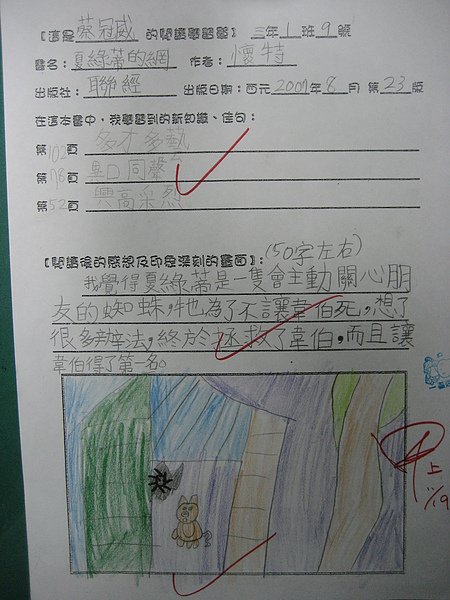 【這是蔡冠威的閱讀學習單】 三年1班9號
書名：夏綠蒂的網 作者：懷特
出版社：聯經 出版日期：西元2007年8月 第23版
在這本書中，我學習到的新知識、佳句：
第102頁 多才多藝
第78頁 異口同聲
第52頁 興高采烈
【閱讀後的感想及印象深刻的畫面】：(50字左右)
我覺得夏綠蒂是一隻會主動關心朋
友的蜘蛛，牠為了不讓韋伯死，想了
很多辦法，終於拯救了韋伯，而且讓
韋伯得了第一名。
甲上
11/19